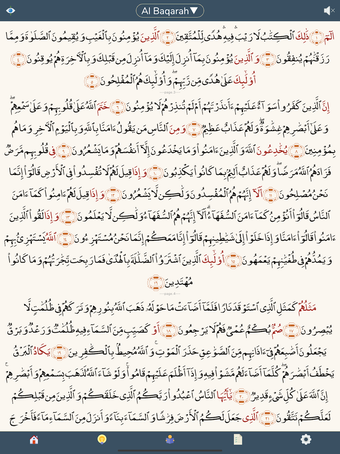 Al Baqarah▼
الٓمٓ ذَٰلِكَ ٱلْكِتَٰبُ لَا رَيْبَ ۛ فِيهِ ۛ هُدًى لِّلْمُتَّقِينَ ٱلَّذِينَ يُؤْمِنُونَ بِٱلْغَيْبِ وَيُقِيمُونَ ٱلصَّلَوٰةَ وَمِمَّا
رَزَقْنَٰهُمْ يُنفِقُونَ وَٱلَّذِينَ يُؤْمِنُونَ بِمَآ أُنزِلَ إِلَيْكَ وَمَآ أُنزِلَ مِن قَبْلِكَ وَبِٱلْءَاخِرَةِ هُمْ يُوقِنُونَ
أُو۟لَٰٓئِكَ عَلَىٰ هُدًى مِّن رَّبِّهِمْ ۖ وَأُو۟لَٰٓئِكَ هُمُ ٱلْمُفْلِحُونَ
إِنَّ ٱلَّذِينَ كَفَرُوا۟ سَوَآءٌ عَلَيْهِمْ ءَأَنذَرْتَهُمْ أَمْ لَمْ تُنذِرْهُمْ لَا يُؤْمِنُونَ خَتَمَ ٱللَّهُ عَلَىٰ قُلُوبِهِمْ وَعَلَىٰ سَمْعِهِمْ ۖ
وَعَلَىٰٓ أَبْصَٰرِهِمْ غِشَٰوَةٌ ۖ وَلَهُمْ عَذَابٌ عَظِيمٌ وَمِنَ ٱلنَّاسِ مَن يَقُولُ ءَامَنَّا بِٱللَّهِ وَبِٱلْيَوْمِ ٱلْءَاخِرِ وَمَا هُم
بِمُؤْمِنِينَ يُخَٰدِعُونَ ٱللَّهَ وَٱلَّذِينَ ءَامَنُوا۟ وَمَا يَخْدَعُونَ إِلَّآ أَنفُسَهُمْ وَمَا يَشْعُرُونَ فِى قُلُوبِهِم مَّرَضٌ
فَزَادَهُمُ ٱللَّهُ مَرَضًا ۖ وَلَهُمْ عَذَابٌ أَلِيمٌۢ بِمَا كَانُوا۟ يَكْذِبُونَ وَإِذَا قِيلَ لَهُمْ لَا تُفْسِدُوا۟ فِى ٱلْأَرْضِ قَالُوٓا۟ إِنَّمَا
نَحْنُ مُصْلِحُونَ أَلَآ إِنَّهُمْ هُمُ ٱلْمُفْسِدُونَ وَلَٰكِن لَّا يَشْعُرُونَ وَإِذَا قِيلَ لَهُمْ ءَامِنُوا۟ كَمَآ ءَامَنَ
ٱلنَّاسُ قَالُوٓا۟ أَنُؤْمِنُ كَمَآ ءَامَنَ ٱلسُّفَهَآءُ ۗ أَلَآ إِنَّهُمْ هُمُ ٱلسُّفَهَآءُ وَلَٰكِن لَّا يَعْلَمُونَ وَإِذَا لَقُوا۟ ٱلَّذِينَ
ءَامَنُوا۟ قَالُوٓا۟ ءَامَنَّا وَإِذَا خَلَوْا۟ إِلَىٰ شَيَٰطِينِهِمْ قَالُوٓا۟ إِنَّا مَعَكُمْ إِنَّمَا نَحْنُ مُسْتَهْزِءُونَ ٱللَّهُ يَسْتَهْزِئُ بِهِمْ
وَيَمُدُّهُمْ فِى طُغْيَٰنِهِمْ يَعْمَهُونَ أُو۟لَٰٓئِكَ ٱلَّذِينَ ٱشْتَرَوُا۟ ٱلضَّلَٰلَةَ بِٱلْهُدَىٰ فَمَا رَبِحَت تِّجَٰرَتُهُمْ وَمَا كَانُوا۟
مُهْتَدِينَ
مَثَلُهُمْ كَمَثَلِ ٱلَّذِى ٱسْتَوْقَدَ نَارًا فَلَمَّآ أَضَآءَتْ مَا حَوْلَهُۥ ذَهَبَ ٱللَّهُ بِنُورِهِمْ وَتَرَكَهُمْ فِى ظُلُمَٰتٍ لَّا
يُبْصِرُونَ صُمٌّۢ بُكْمٌ عُمْىٌ فَهُمْ لَا يَرْجِعُونَ أَوْ كَصَيِّبٍ مِّنَ ٱلسَّمَآءِ فِيهِ ظُلُمَٰتٌ وَرَعْدٌ وَبَرْقٌ
يَجْعَلُونَ أَصَٰبِعَهُمْ فِىٓ ءَاذَانِهِم مِّنَ ٱلصَّوَٰعِقِ حَذَرَ ٱلْمَوْتِ ۚ وَٱللَّهُ مُحِيطٌۢ بِٱلْكَٰفِرِينَ يَكَادُ ٱلْبَرْقُ
يَخْطَفُ أَبْصَٰرَهُمْ ۖ كُلَّمَآ أَضَآءَ لَهُم مَّشَوْا۟ فِيهِ وَإِذَآ أَظْلَمَ عَلَيْهِمْ قَامُوا۟ ۚ وَلَوْ شَآءَ ٱللَّهُ لَذَهَبَ بِسَمْعِهِمْ وَأَبْصَٰرِهِمْ ۚ
إِنَّ ٱللَّهَ عَلَىٰ كُلِّ شَىْءٍ قَدِيرٌ يَٰٓأَيُّهَا ٱلنَّاسُ ٱعْبُدُوا۟ رَبَّكُمُ ٱلَّذِى خَلَقَكُمْ وَٱلَّذِينَ مِن قَبْلِكُمْ
لَعَلَّكُمْ تَتَّقُونَ ٱلَّذِى جَعَلَ لَكُمُ ٱلْأَرْضَ فِرَٰشًا وَٱلسَّمَآءَ بِنَآءً وَأَنزَلَ مِنَ ٱلسَّمَآءِ مَآءً فَأَخْرَجَ